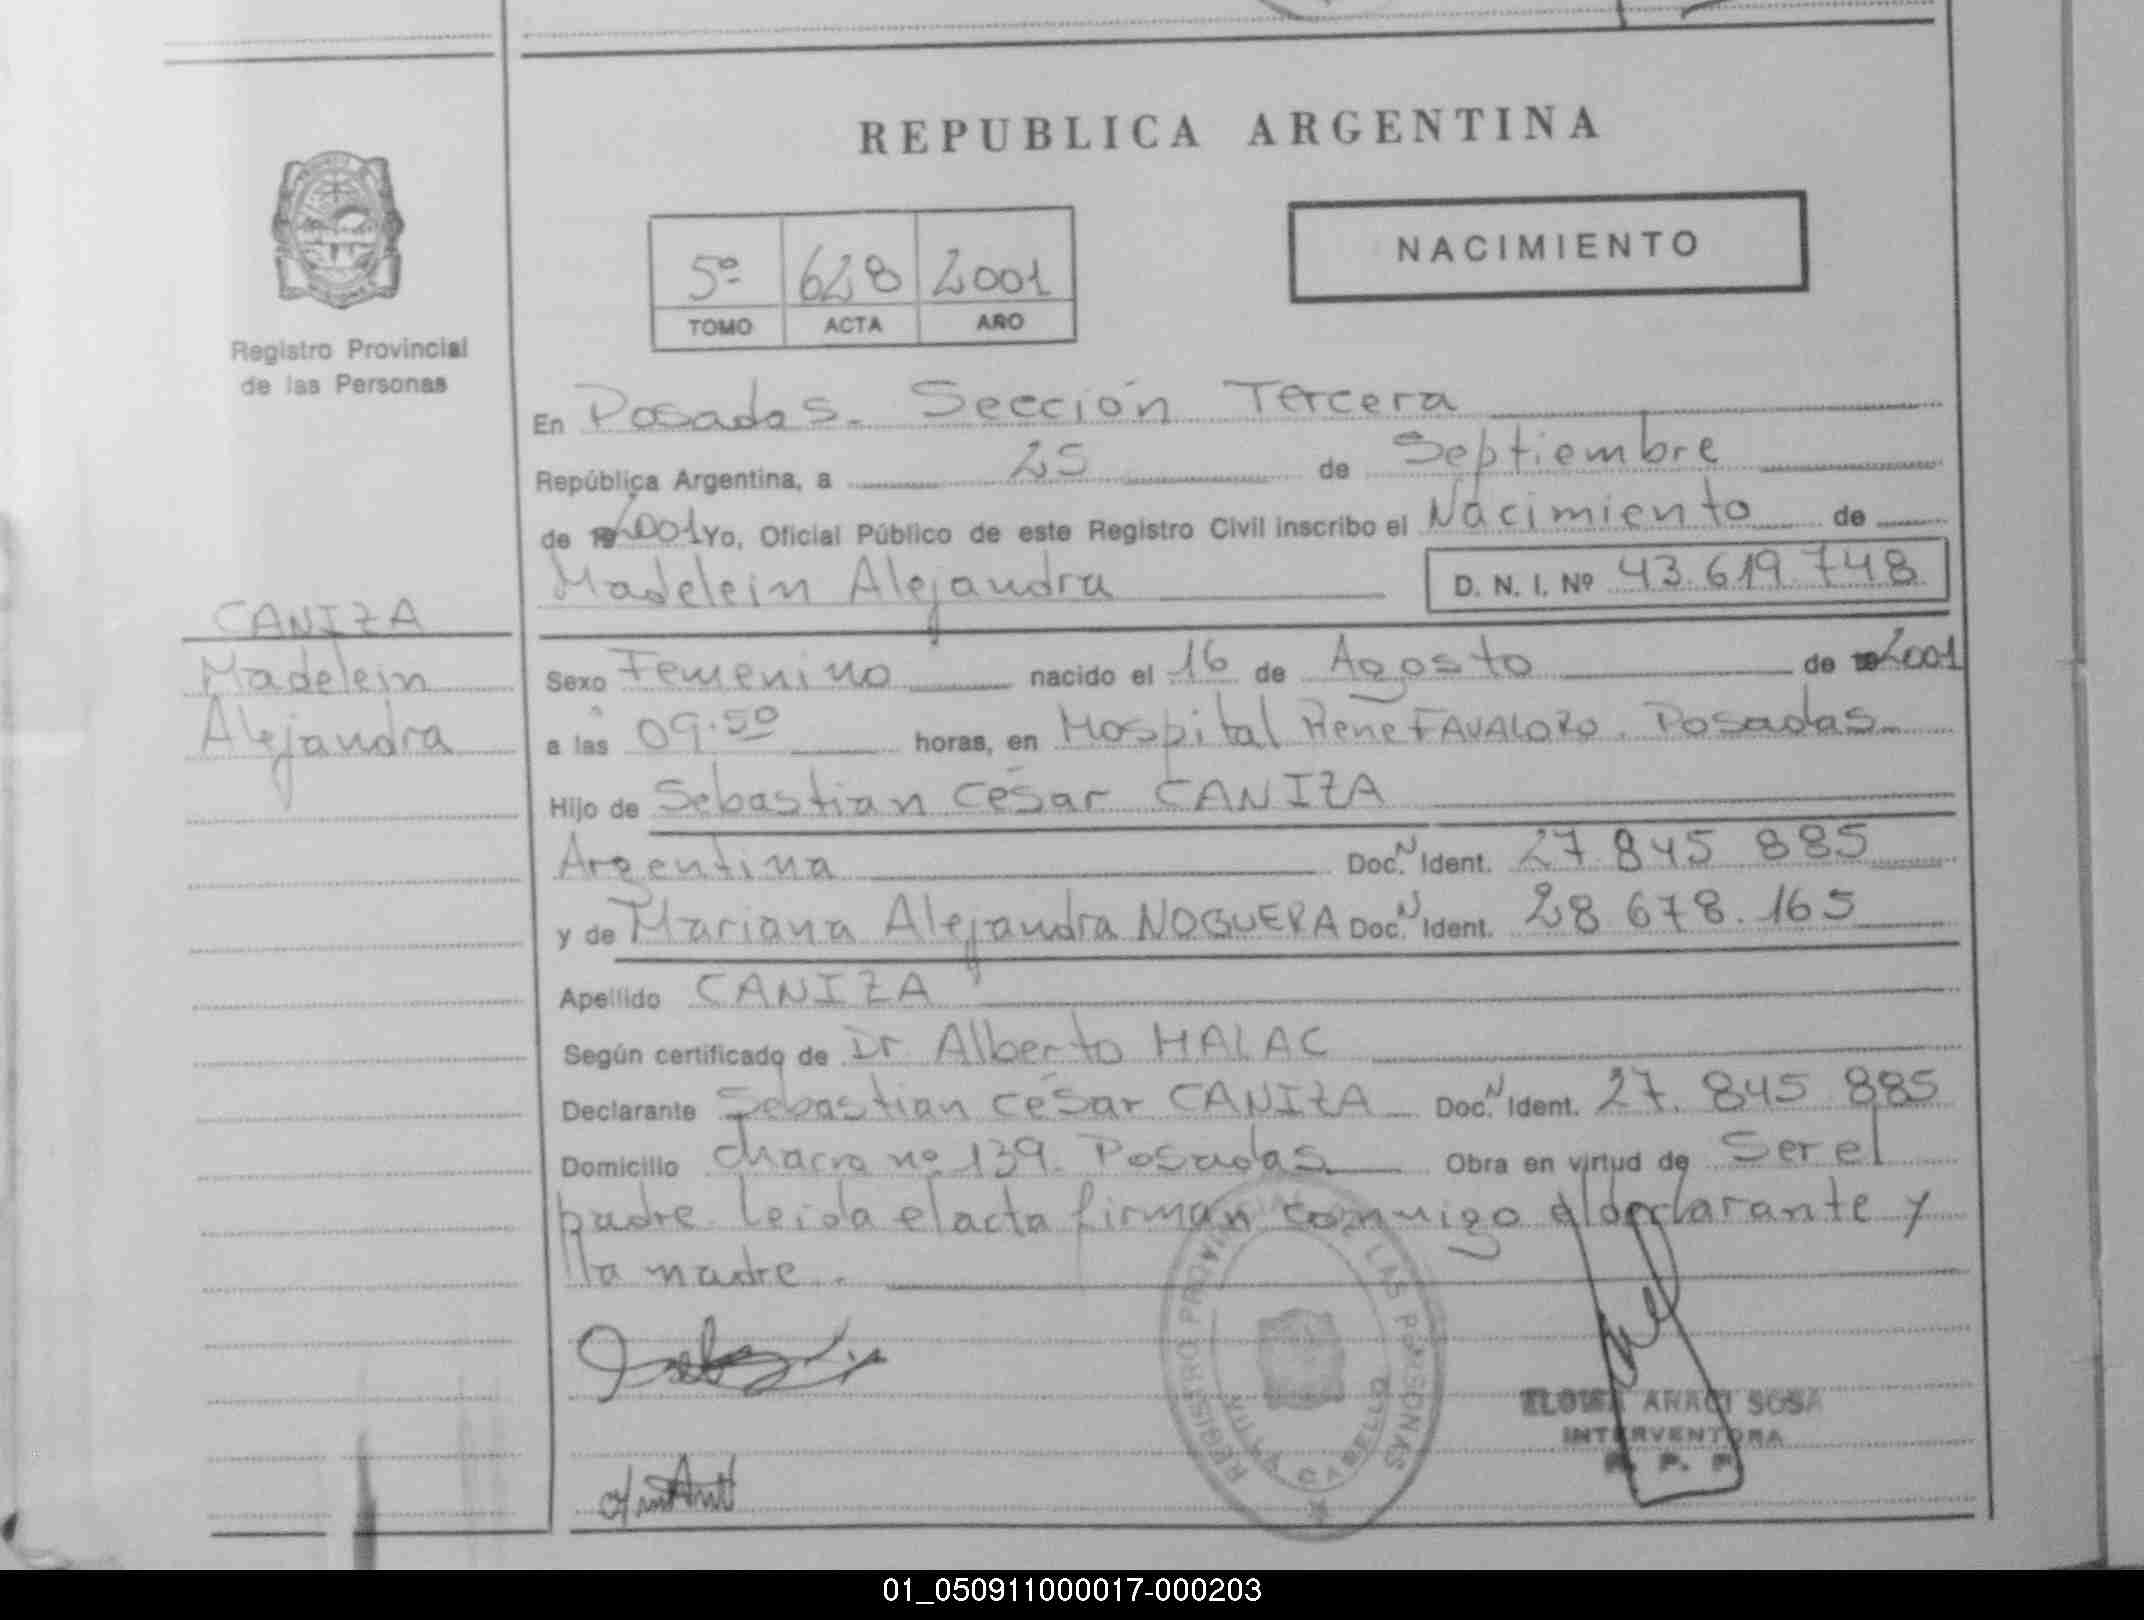 REPUBLICA ARGENTINA
NACIMIENTO
5º 628 2001
TOMO ACTA AÑO
Registro Provincial
de las Personas
En Posadas. Sección Tercera
República Argentina, a 25 de Septiembre
de 2001 Yo, Oficial Público de este Registro Civil inscribo el Nacimiento de
Madelein Alejandra D. N. I. Nº 43.619.748
CANIZA
Madelein
Alejandra
Sexo Femenino nacido el 16 de Agosto de 2001
a las 09.50 horas, en Hospital Rene FAVALORO. Posadas
Hijo de Sebastian César CANIZA
Argentina Doc. N Ident. 27.845 885
y de Mariana Alejandra NOGUERA Doc. N Ident. 28 678.165
Apellido CANIZA
Según certificado de Dr Alberto HALAC
Declarante Sebastian César CANIZA Doc. N Ident. 27.845 885
Domicilio chacra nº 139. Posadas Obra en virtud de Ser el
padre. Leida el acta firman conmigo el declarante y
la madre.
REGISTRO PROVINCIAL DE LAS PERSONAS
VILLA CABELLO
SOSA
INTERVENTORA
01_050911000017-000203